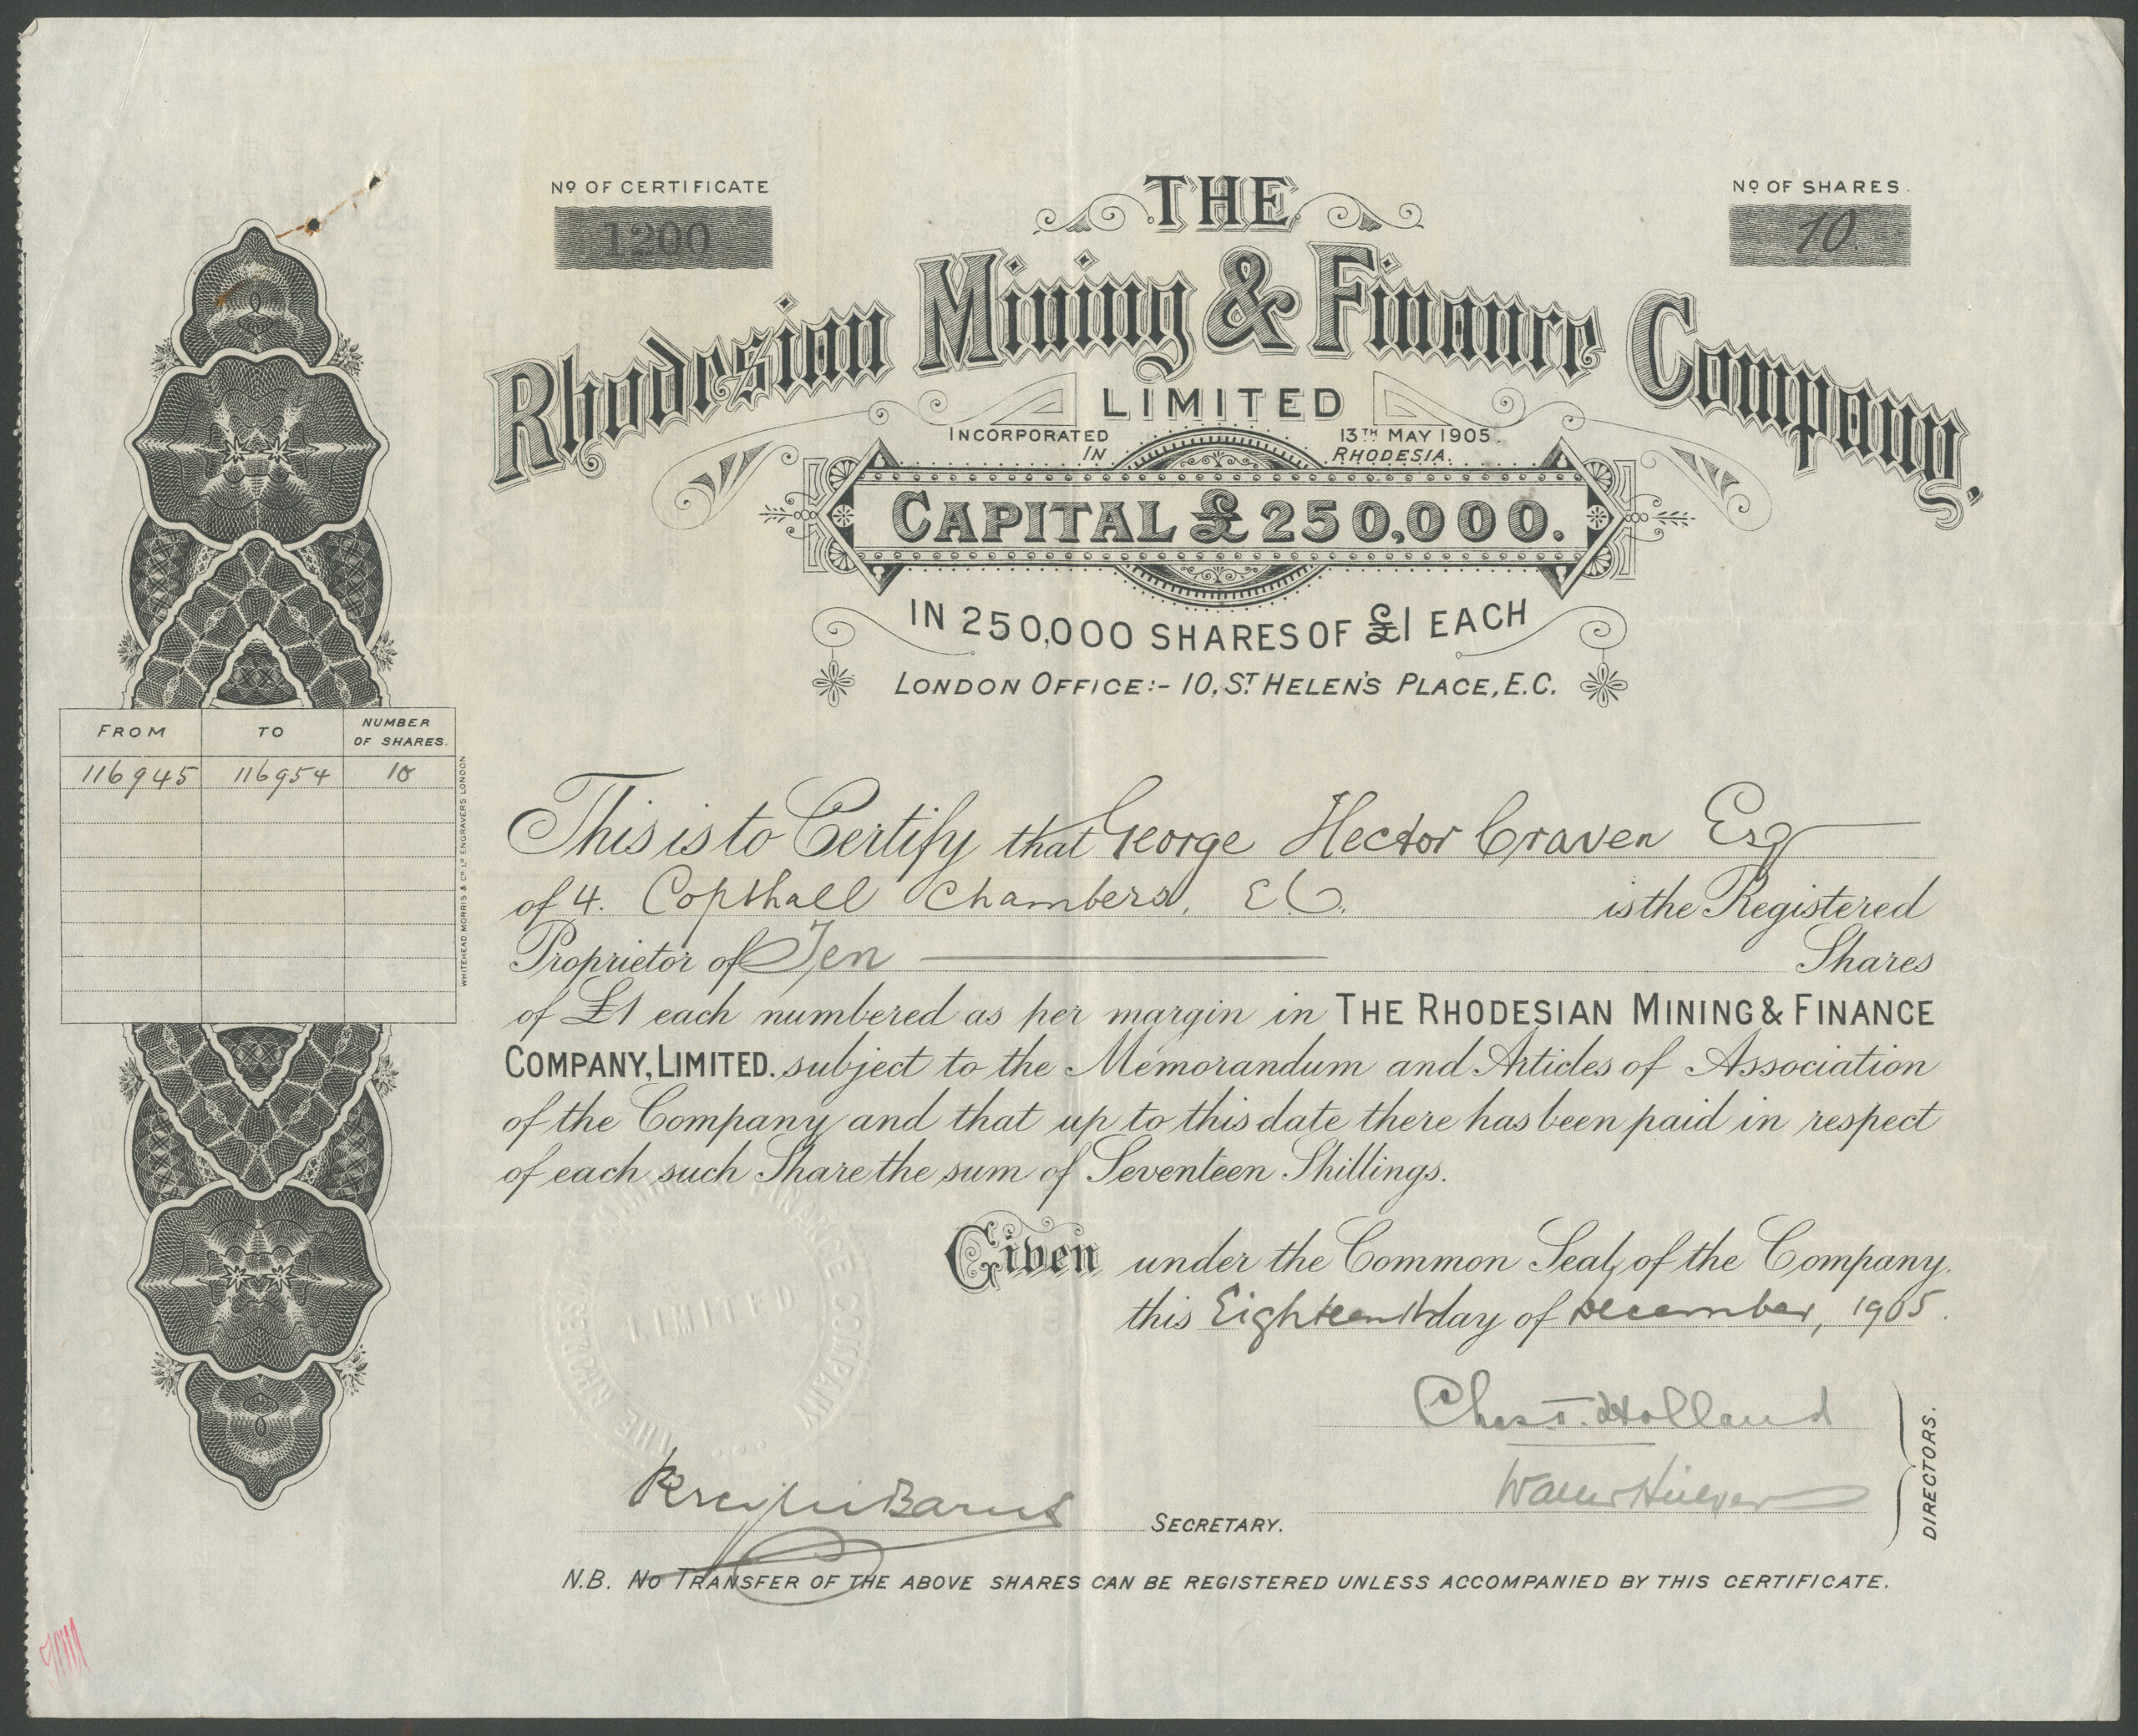 Nº OF CERTIFICATE
1200
Nº OF SHARES.
10
THE
Rhodesian Mining & Finance Company,
LIMITED
INCORPORATED 13TH MAY 1905.
IN RHODESIA.
CAPITAL £250,000.
IN 250,000 SHARES OF £1 EACH
LONDON OFFICE:- 10, ST HELEN'S PLACE, E.C.
FROM TO NUMBER OF SHARES.
116945 116954 10
WHITEHEAD MORRIS & Co Ld ENGRAVERS LONDON
This is to Certify that George Hector Craven Esq
of 4. Copthall Chambers, E.C. is the Registered
Proprietor of Ten Shares
of £1 each numbered as per margin in THE RHODESIAN MINING & FINANCE
COMPANY, LIMITED. subject to the Memorandum and Articles of Association
of the Company and that up to this date there has been paid in respect
of each such Share the sum of Seventeen Shillings.
Given under the Common Seal, of the Company.
this Eighteenth day of December, 1905.
THE RHODESIAN MINING & FINANCE COMPANY
LIMITED
Chas T. Holland
DIRECTORS.
SECRETARY.
N.B. NO TRANSFER OF THE ABOVE SHARES CAN BE REGISTERED UNLESS ACCOMPANIED BY THIS CERTIFICATE.